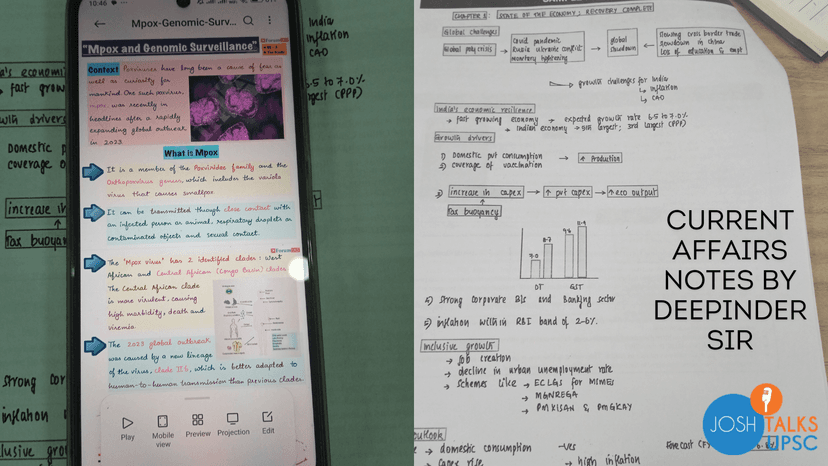 10:46
Mpox-Genomic-Surv...
"Mpox and Genomic Surveillance"
Context Poxviruses have long been a cause of fear as
well as curiosity for
mankind. One such poxvirus,
mpox, was recently in
headlines after a rapidly
expanding global outbreak
in 2023
What is Mpox
It is a member of the Poxviridae family and the
Orthopoxvirus genus, which includes the variola
virus that causes smallpox.
It can be transmitted through close contact with
an infected person or animal, respiratory droplets or
contaminated objects and sexual contact.
The 'Mpox virus' has 2 identified clades: West
African and Central African (Congo Basin) clades.
The Central African clade
is more virulent, causing
high morbidity, death and
viremia.
The 2023 global outbreak
was caused by a new lineage
of the virus, clade IIb, which is better adapted to
human-to-human transmission than previous clades.
Play
Mobile view
Preview
Projection
Edit
India
inflation
CAD
6.5 to 7.0%
largest (PPP)
India's economic
fast grow
Growth drivers
Domestic
coverage o
increase in
Tax buoyancy
Strong cor
inflation
CHAPTER 1: STATE OF THE ECONOMY: RECOVERY COMPLETE
Global challenges
Global poly crisis
Covid pandemic
Russia ukraine conflict
Monetary tightening
global
slowdown
Slowing cross border trade
slowdown in china
Loss of education & empt
growth challenges for India
inflation
CAD
India's economic resilience
fast growing economy → expected growth rate 6.5 to 7.0%
Indian economy → 5th largest; 3rd largest (PPP)
Growth drivers
1) Domestic pvt consumption → ↑ Production
2) coverage of vaccination
3) increase in capex → ↑ pvt capex → ↑ eco output
Tax buoyancy
7.0
8.7
DT
GST
4) Strong corporate B/s and Banking sector
5) inflation within RBI band of 2-6%.
Inclusive growth
→ job creation
→ decline in urban unemployment rate
→ schemes like → ECLGS for MSMEs
→ MGNREGA
→ PM KISAN & PMGKAY
outlook
→ domestic consumption
-ves
capex rise
→ high inflation
CURRENT
AFFAIRS
NOTES BY
DEEPINDER
SIR
JOSH TALKS
UPSC